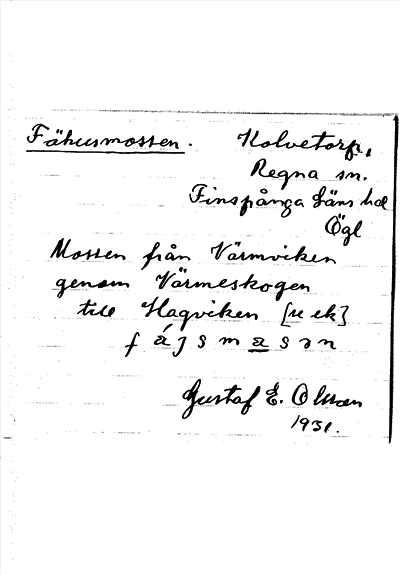 Fähusmossen.
Kolvetorp,
Regna sn.
Finspånga Läns hd
Ögl
Mossen från Värmviken
genom Värmeskogen
till Hagviken [se ek]
Gustaf E. Olsson
1931.